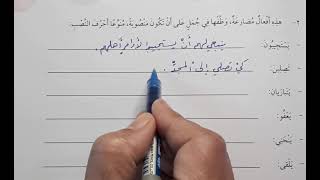 ٢- هذِهِ أَفْعالٌ مُضارِعَةٌ، وَظِّفْها في جُمَلٍ عَلى أَنْ تَكُونَ مَنْصُوبَةً، مُنَوِّعًا أَحْرُفَ النَّصْبِ.
يَسْتَجيبُونَ: أَنْ يستجيبوا لأوامر أهلهم.
تَصِلينَ: كيْ تصلي إلى المجدِ.
يَتَبارَيانِ:
يَعْفُو:
يَنْحَني:
يَلْقى: